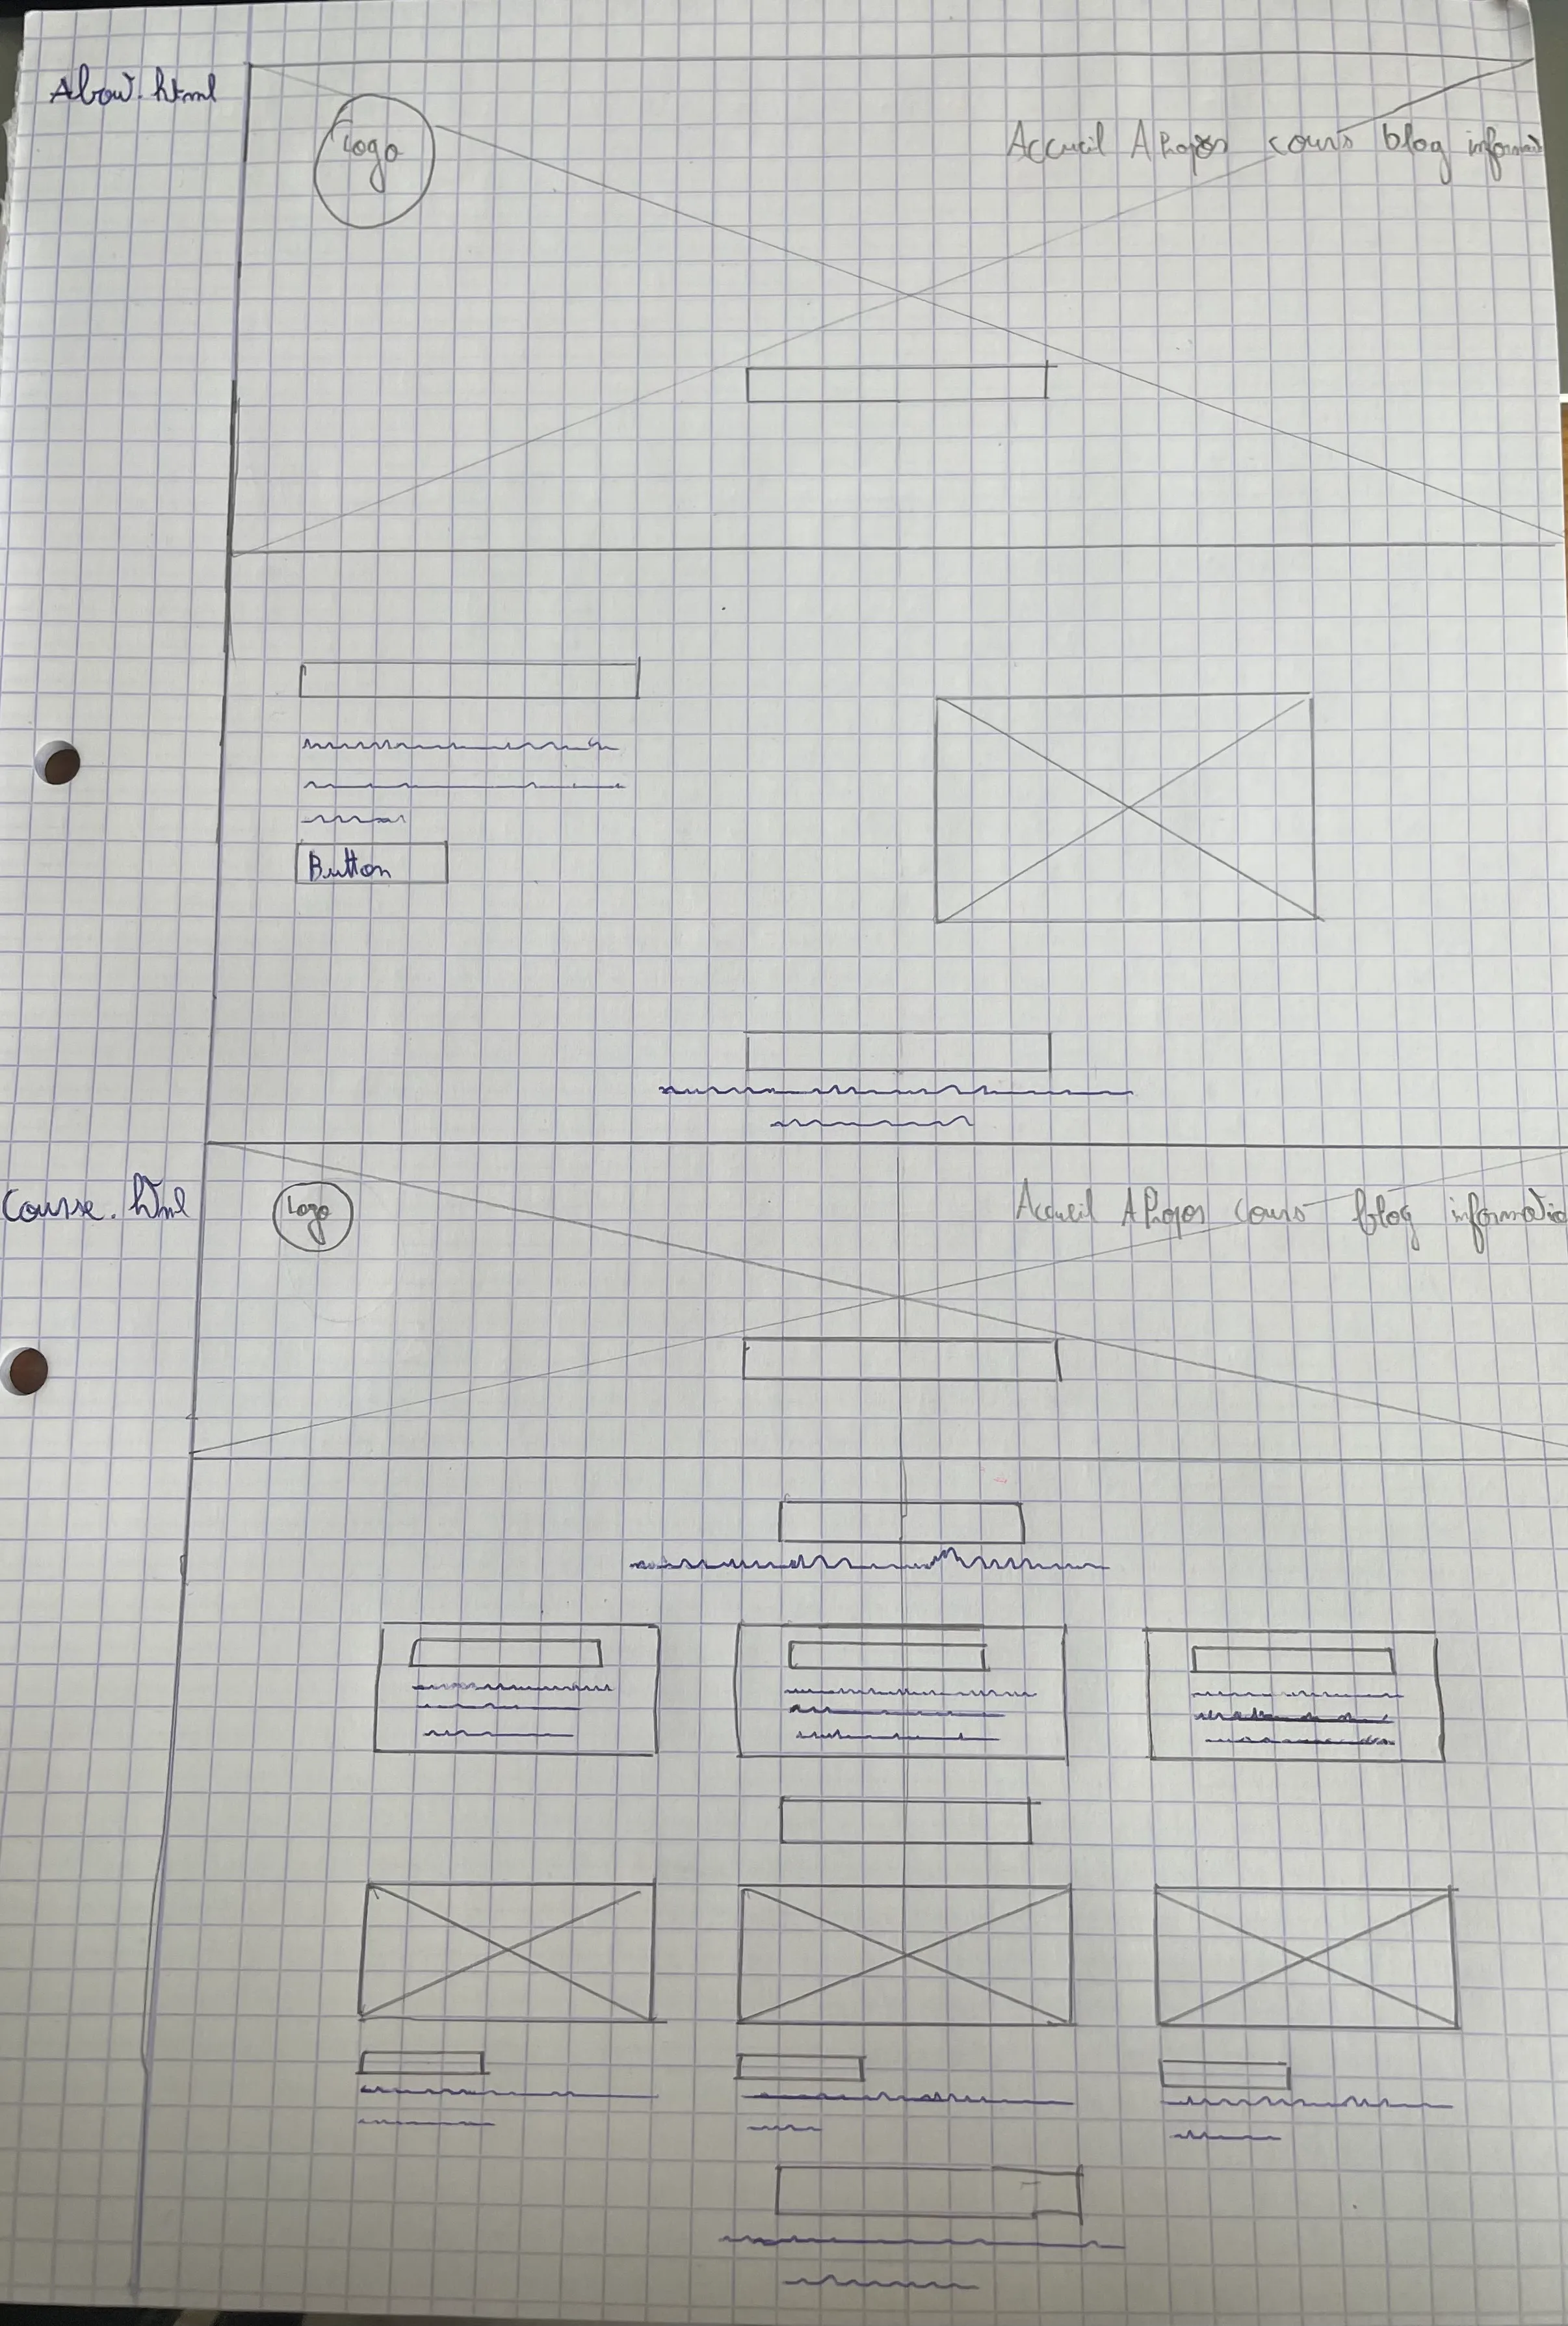 About.html
Logo
Accueil A Propos cours blog informati
Button
Course.html
Logo
Accueil A Propos cours blog informatio